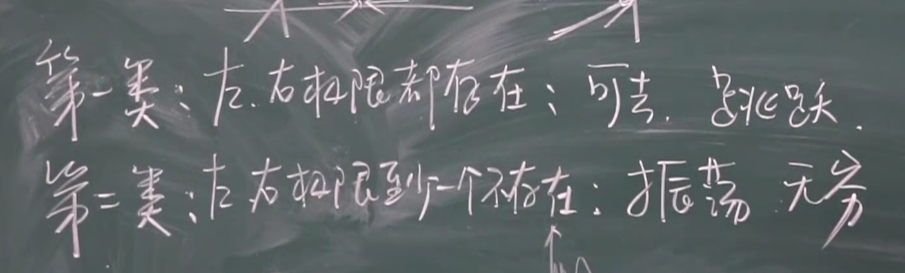 第一类：左.右极限都存在；可去. 跳跃.
第二类：左右极限到少一个不存在：振荡 无穷